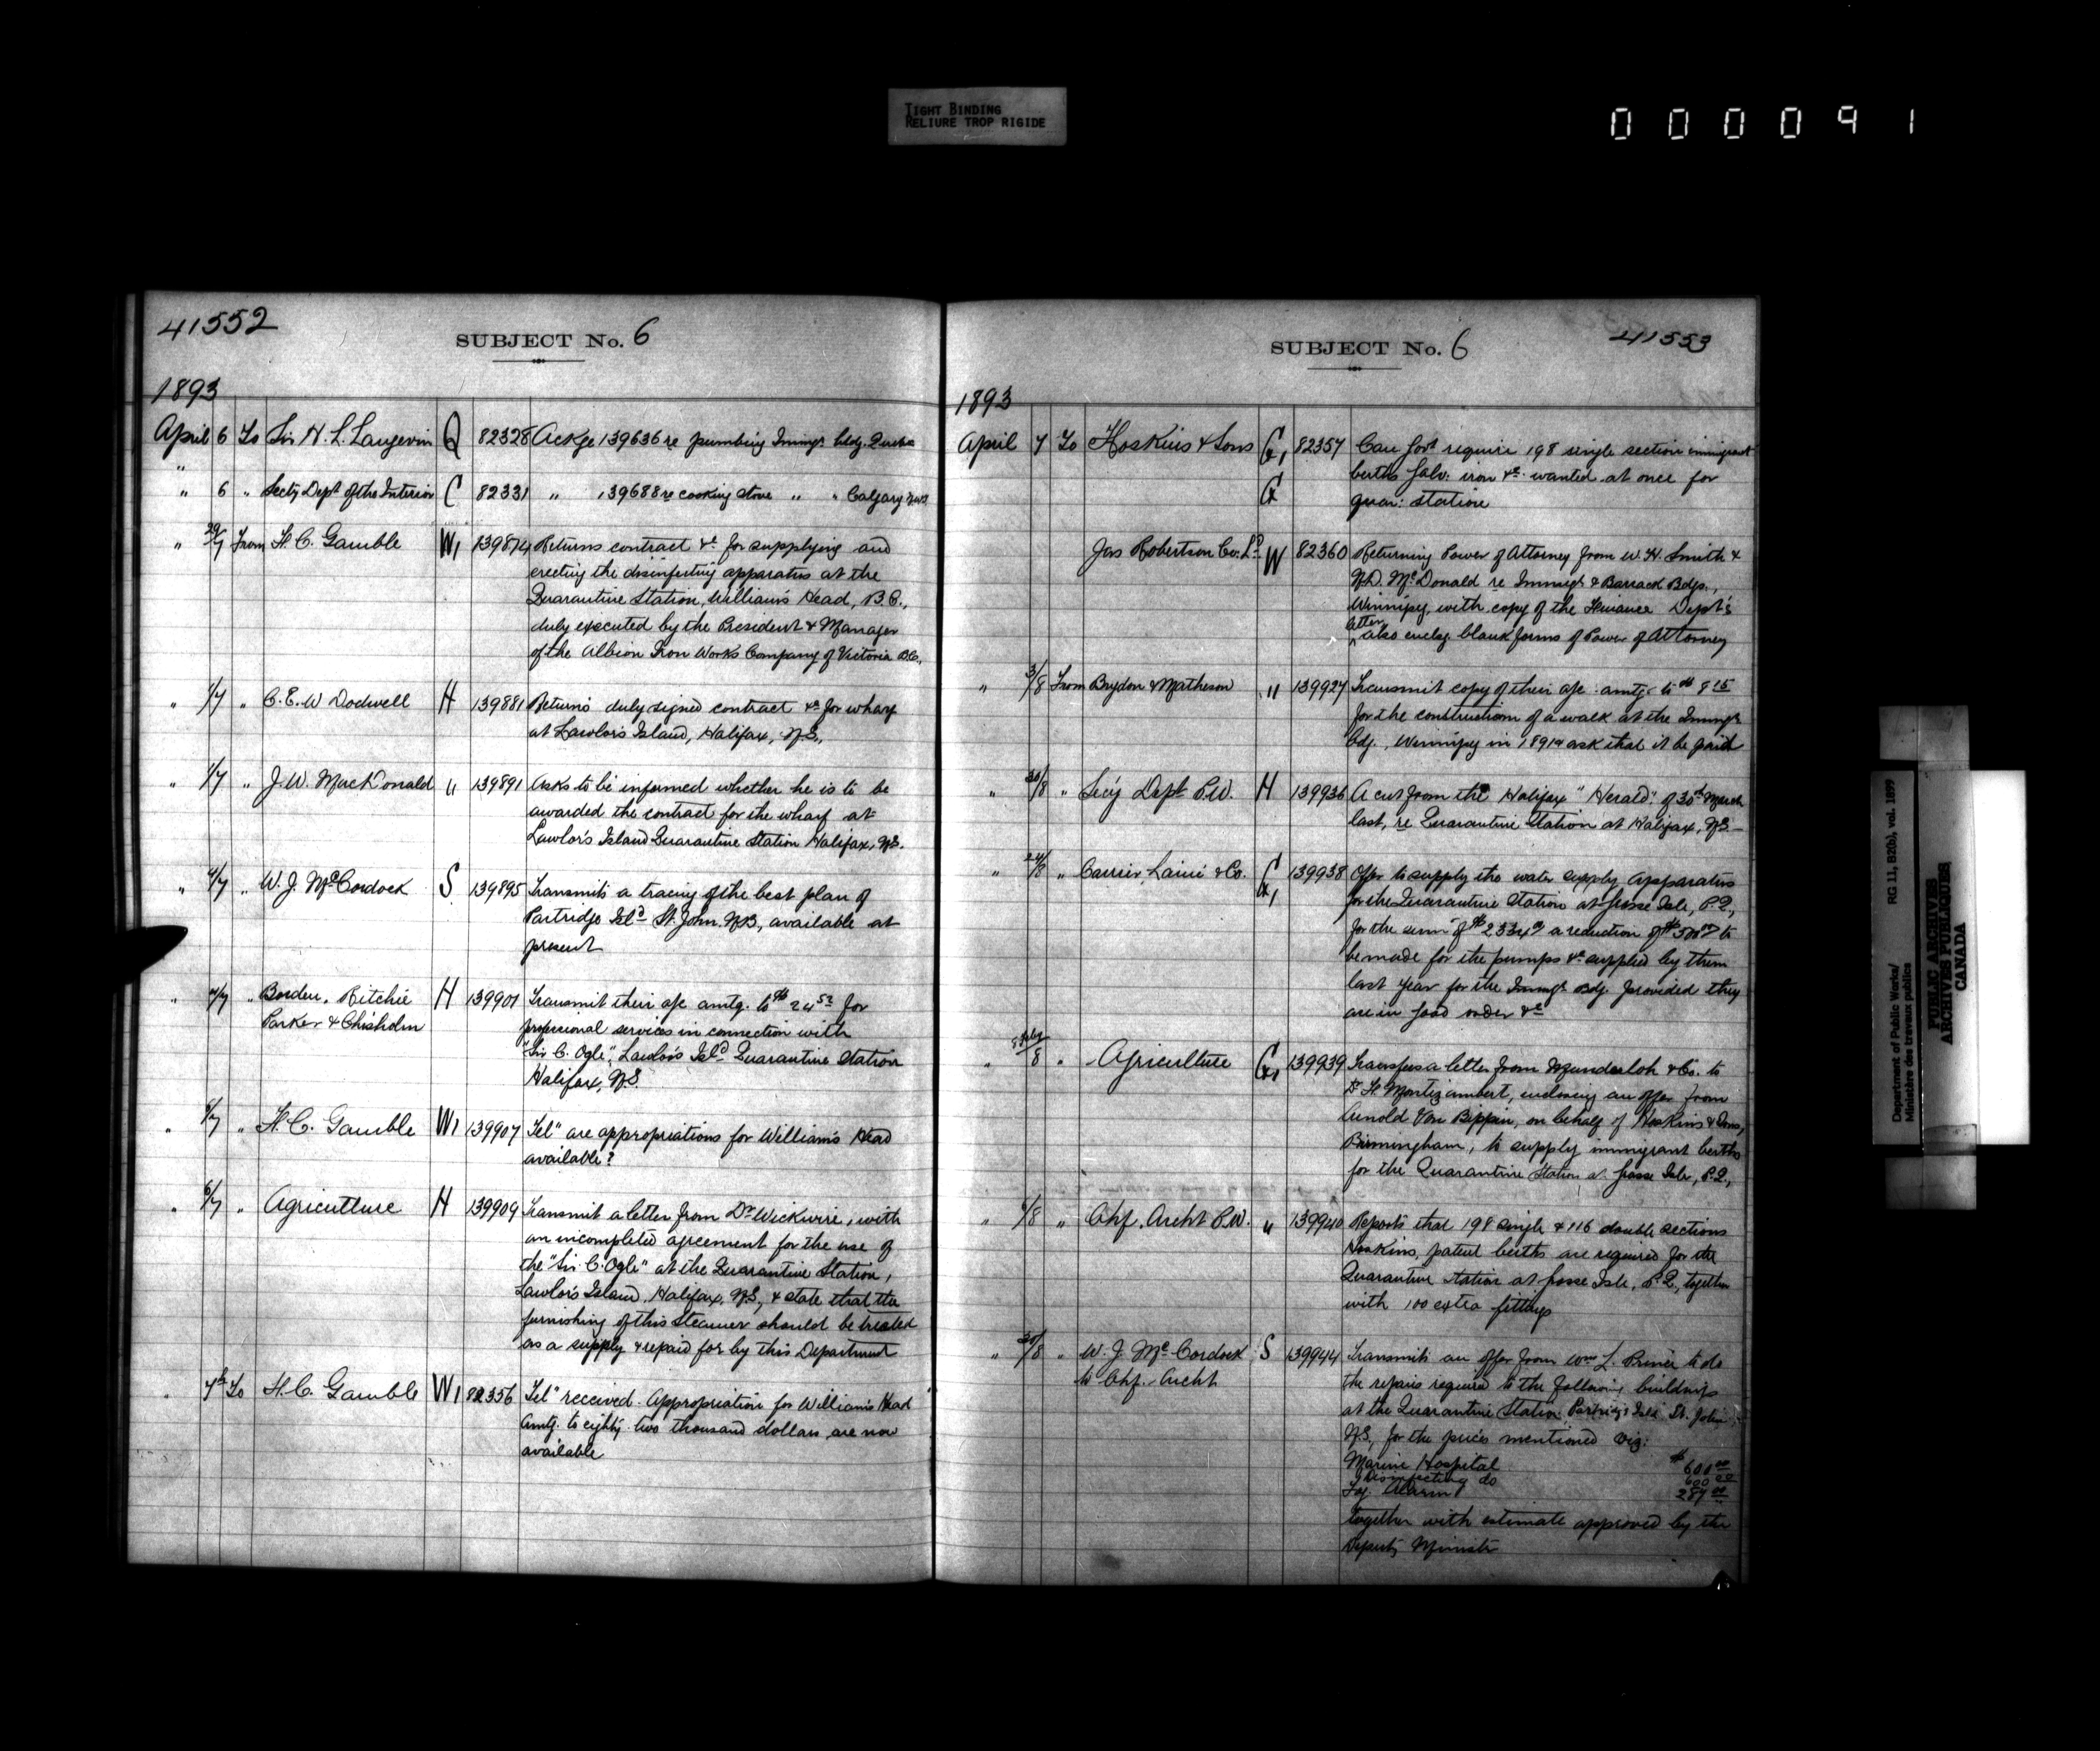 TIGHT BINDING
RELIURE TROP RIGIDE
000091
41552
SUBJECT No. 6
1893
April 6 To Sir H. L. Langevin Q 82328 Ackge 139636 re pumbing Immigt bldg. Quebec
" 6 " Secty Dept of the Interior C 82331 " 139688 re cooking stove " " Calgary
" 29/7 From H. C. Gamble W1 139874 Returns contract &c for supplying and
erecting the disinfecting apparatus at the
Quarantine Station, William's Head, B.C.,
duly executed by the President & Manager
of the Albion Iron Works Company of Victoria B.C.,
" 1/7 " C. E. W Dodwell H 139881 Returns duly signed contract &c for wharf
at Lawlor's Island, Halifax, N.S.,
" 1/7 " J. W. MacKonald " 139891 Asks to be informed whether he is to be
awarded the contract for the wharf at
Lawlor's Island Quarantine Station Halifax, N.S.
" 4/7 " W. J. McCordock S 139895 Transmits a tracing of the best plan of
Partridge Isld St. John. N.B., available at
present
" 4/7 " Borden, Ritchie H 139901 Transmit their a/c amtg. to $24 52 for
Parker & Chisholm professional services in connection with
"Sir C. Ogle", Lawlor's Isld Quarantine Station
Halifax, N.S.
" 6/7 " H. C. Gamble W1 139907 Tel" are appropriations for William's Head
available?
" 6/7 " Agriculture H 139909 Transmit a letter from Dr Wickwire, with
an incompleted agreement for the use of
the "Sir C. Ogle" at the Quarantine Station,
Lawlor's Island, Halifax, N.S., & state that the
furnishing of this Steamer should be treated
as a supply & repaid for by this Department
" 7th To H. C. Gamble W1 82356 Tel" received. Appropriation for William's Head
Amtg. to eighty two thousand dollars are now
available
SUBJECT No. 6
41553
1893
April 7 To Hoskins & Sons G, 82357 Can Govt require 198 single section immigrant
G berths Galv. iron &c wanted at once for
quar: station
Jas Robertson Co. Ld W 82360 Returning Power of Attorney from W. H. Smith &
N.D. McDonald re Immigt & Barrack Bdgs.,
Winnipeg, with copy of the Finance Dept's
letter also enclsg blank forms of Power of Attorney
" 3/8 From Brydon & Matheson " 139927 Transmit copy of their a/c amtg. to $ 9 15
for the construction of a walk at the Immigt
Bdg., Winnipeg in 1891 & ask that it be paid
" 30/8 " Secy Dept P.W. H 139936 A cut from the Halifax "Herald" of 30th March
last, re Quarantine Station at Halifax, N.S.
" 24/8 " Carrier, Lainé & Co. G, 139938 Offer to supply the water supply apparatus
for the Quarantine Station at Grosse Isle, P.Q.,
for the sum of $2334 00 a reduction of $500 00 to
be made for the pumps &c supplied by them
last year for the Immigt Bdg. provided they
are in good order &c
" 8 " Agriculture G, 139939 Transfers a letter from Munderloh & Co. to
Dr F. Montizambert, enclosing an offer from
Arnold Von Bippen, on behalf of Hoskins & Sons,
Birmingham, to supply immigrant berths
for the Quarantine Station at Grosse Isle, P.Q.,
" 4/8 " Chf. Archt P.W. " 139940 Reports that 198 single & 116 double sections
Hoskins, patent berths are required for the
Quarantine Station at Grosse Isle, P.Q., together
with 100 extra fittings
" 30/8 " W. J. McCordock S 139944 Transmits an offer from Wm L. Prince to do
to Chf. Archt the repairs required to the following buildings
at the Quarantine Station, Partridge Isld St. John,
N.S, for the prices mentioned viz:
Marine Hospital $600 00
Disinfecting do 600 00
Fog Alarm 287 00
together with estimate approved by the
Deputy Minister
Department of Public Works/
Ministère des travaux publics
RG 11, B2(b), vol. 1899
PUBLIC ARCHIVES
ARCHIVES PUBLIQUES
CANADA